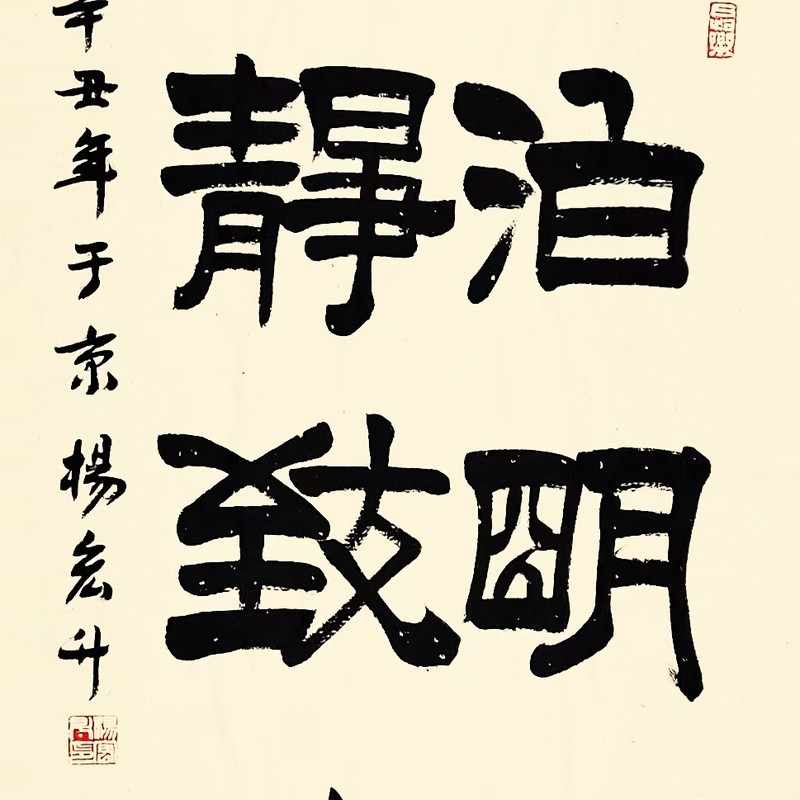 泊明
靜致
辛丑年于京楊宏升